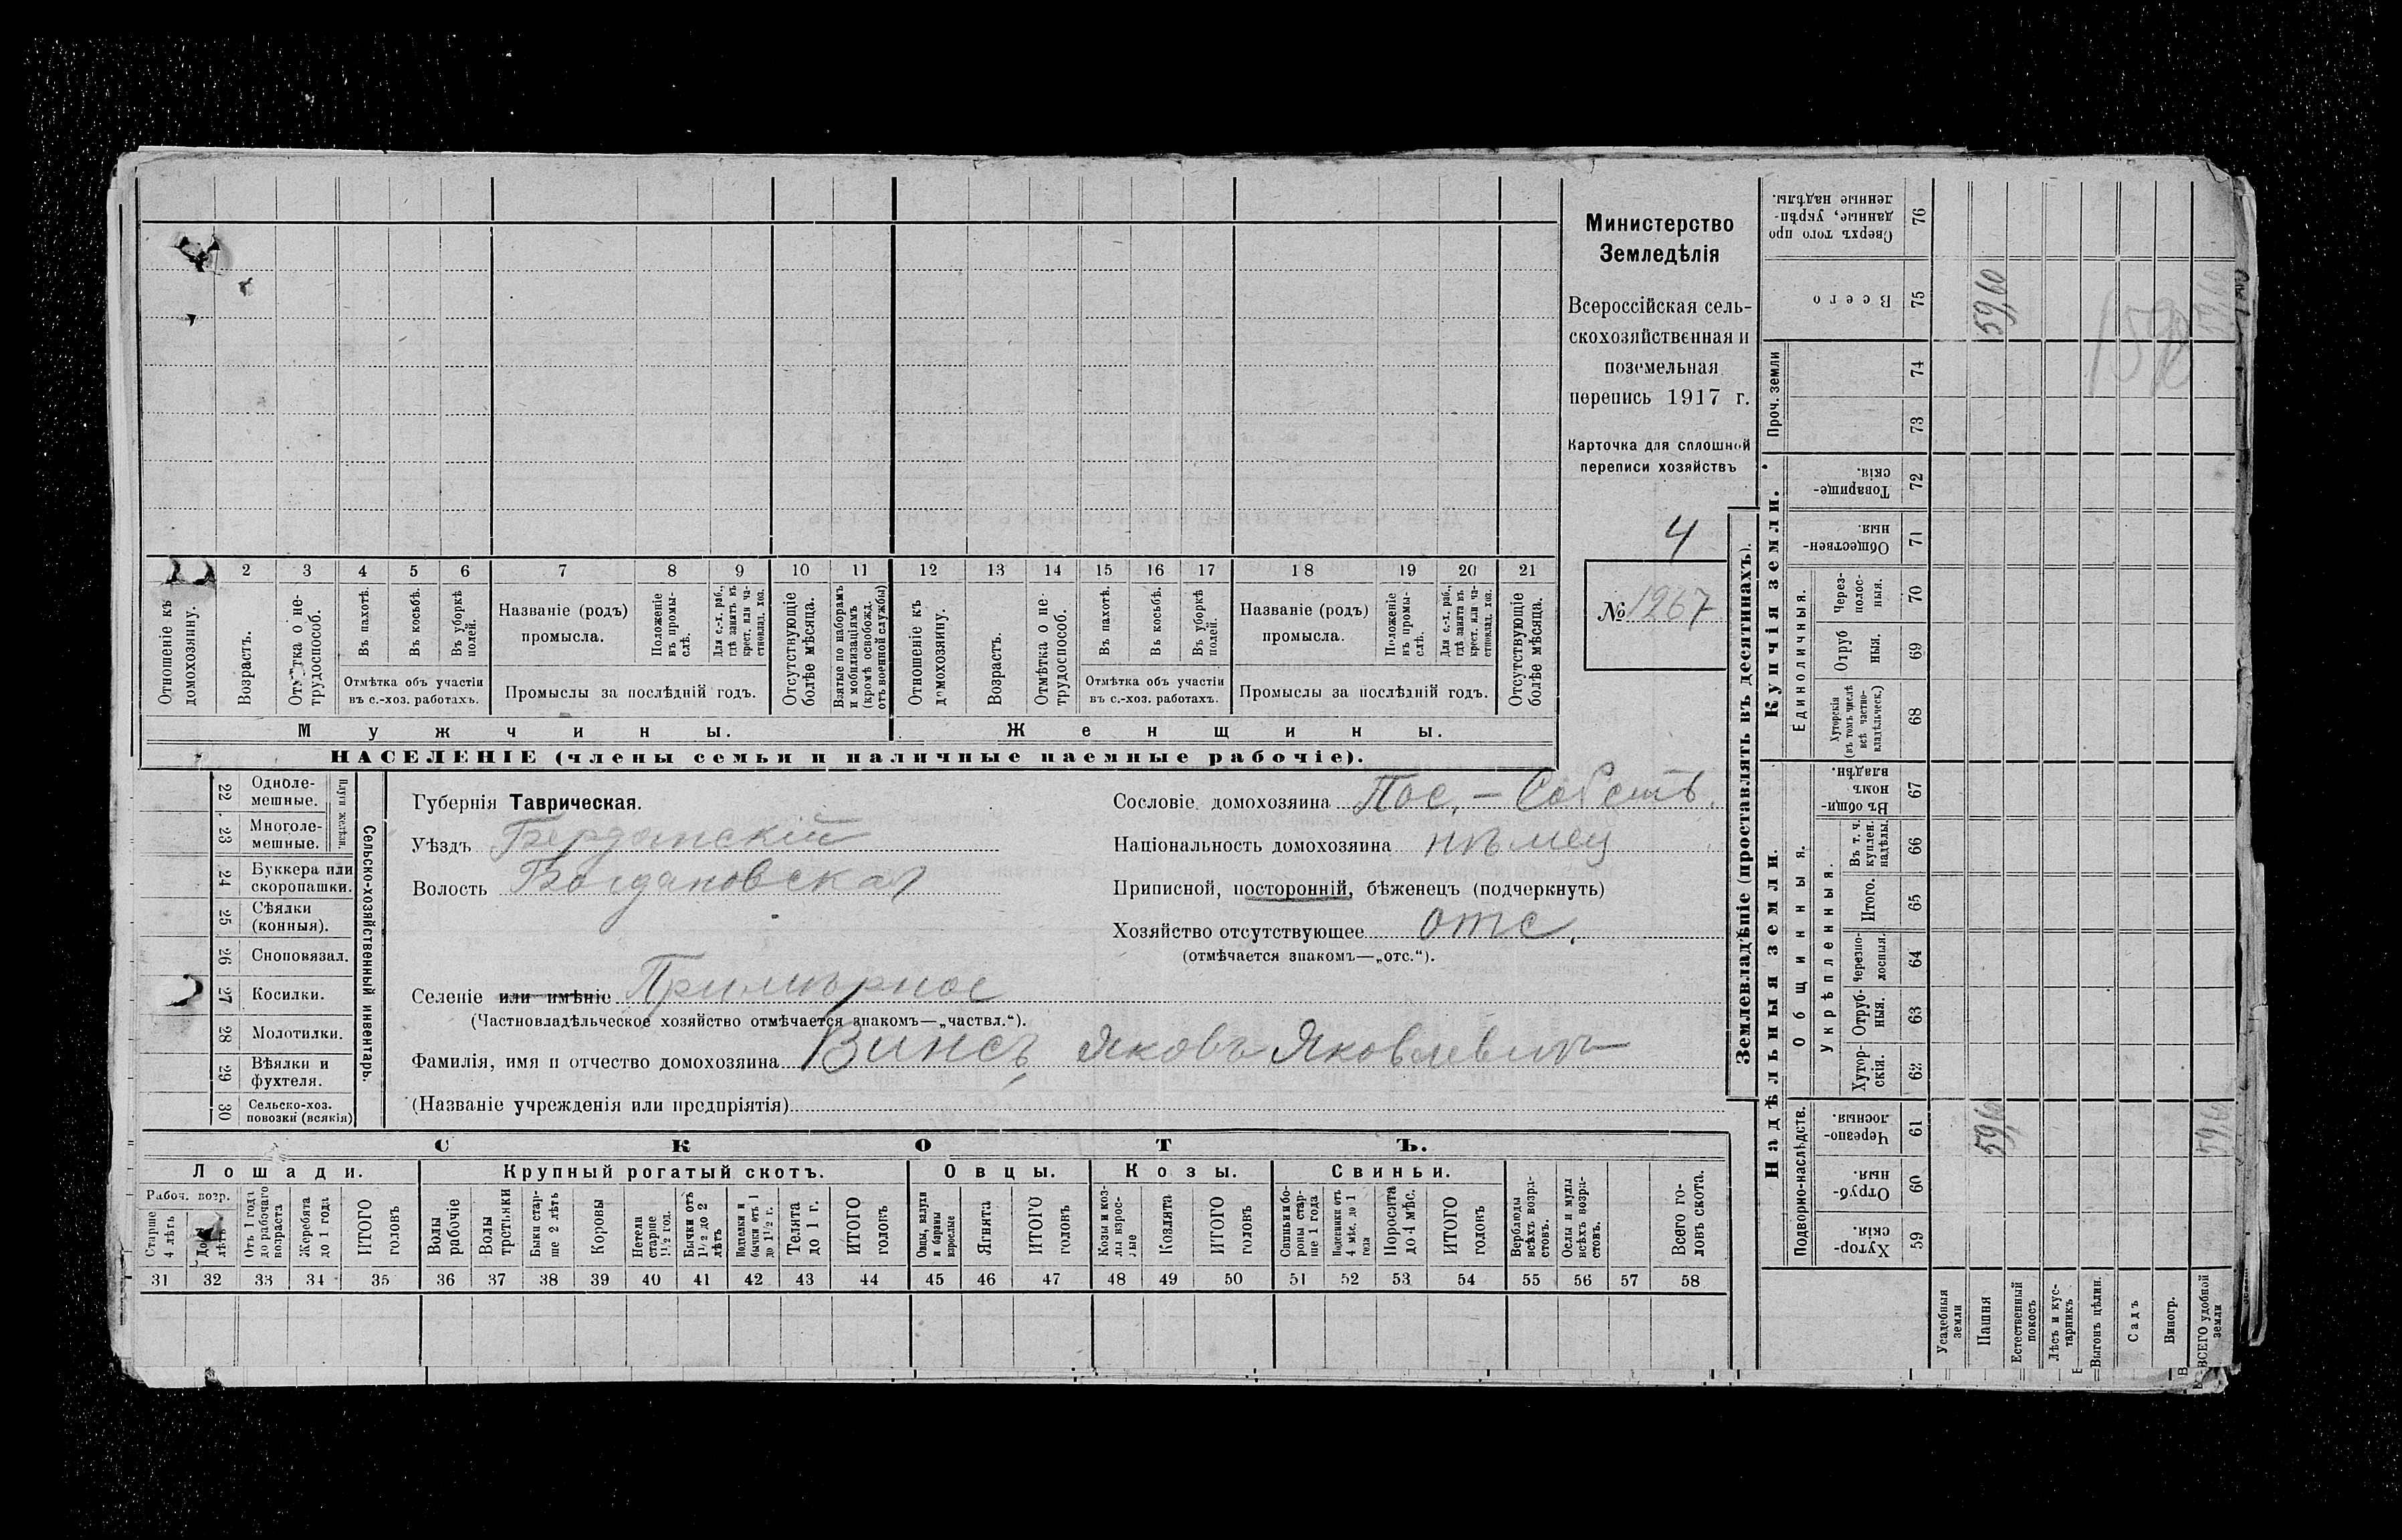 Министерство
Земледѣлія
Всероссійская сель-
скохозяйственная и
поземельная
перепись 1917 г.
Карточка для сплошной
переписи хозяйствъ
4
№ 1267
1 2 3 4 5 6 7 8 9 10 11 12 13 14 15 16 17 18 19 20 21
Отношеніе къ домохозяину.
Возрастъ.
Отмѣтка о не-трудоспособ.
Въ пахотѣ.
Въ косьбѣ.
Въ уборкѣ полей.
Отмѣтка объ участіи
въ с.-хоз. работахъ.
Названіе (родъ)
промысла.
Положеніе въ промы-слѣ.
Для с.-х. раб., гдѣ занятъ въ крест. или ча-стновлад. хоз.
Промыслы за послѣдній годъ.
Отсутствующіе болѣе мѣсяца.
Взятые по наборамъ и мобилизаціямъ (кромѣ освобожд. отъ военной службы)
Отношеніе къ домохозяину.
Возрастъ.
Отмѣтка о не-трудоспособ.
Въ пахотѣ.
Въ косьбѣ.
Въ уборкѣ полей.
Отмѣтка объ участіи
въ с.-хоз. работахъ.
Названіе (родъ)
промысла.
Положеніе въ промы-слѣ.
Для с.-х. раб., гдѣ занята въ крест. или ча-стновлад. хоз.
Промыслы за послѣдній годъ.
Отсутствующіе болѣе мѣсяца.
Мужчины. Женщины.
НАСЕЛЕНІЕ (члены семьи и наличные наемные рабочіе).
22 Одноле-мешные.
23 Многоле-мешные.
Плуги желѣзн.
24 Буккера или скоропашки.
25 Сѣялки (конныя).
26 Сноповязал.
27 Косилки.
28 Молотилки.
29 Вѣялки и фухтеля.
30 Сельско-хоз. повозки (всякія)
Сельско-хозяйственный инвентарь.
Губернія Таврическая.
Уѣздъ Бердянскій
Волость Богдановская
Сословіе домохозяина Пос. – Собств.
Національность домохозяина нѣмец
Приписной, посторонній, бѣженецъ (подчеркнуть)
Хозяйство отсутствующее отс.
(отмѣчается знакомъ—„отс.“).
Селеніе или имѣніе Примѣрное
(Частновладѣльческое хозяйство отмѣчается знакомъ—„частвл.“).
Фамилія, имя и отчество домохозяина Винсъ Яковъ Яковлевич
(Названіе учрежденія или предпріятія)
СКОТЪ.
Лошади. Крупный рогатый скотъ. Овцы. Козы. Свиньи.
Рабоч. возр.
Старше 4 лѣтъ
До 4 лѣтъ
Отъ 1 года до рабочаго возраста
Жеребята до 1 года
ИТОГО головъ
Волы рабочіе
Волы третьяки
Быки стар-ше 2 лѣтъ
Коровы
Нетели старше 1½ год.
Бычки отъ 1½ до 2 лѣтъ
Подтелки и бычки отъ 1 до 1½ г.
Телята до 1 г.
ИТОГО головъ
Овцы, валухи и бараны взрослые
Ягнята
ИТОГО головъ
Козы и коз-лы взрос-лые
Козлята
ИТОГО головъ
Свиньи и бо-ровы стар-ше 1 года
Подсвинки отъ 4 мѣс. до 1 года
Поросята до 4 мѣс.
ИТОГО головъ
Верблюды всѣхъ возра-стовъ.
Ослы и мулы всѣхъ возра-стовъ.
Всего го-ловъ скота.
31 32 33 34 35 36 37 38 39 40 41 42 43 44 45 46 47 48 49 50 51 52 53 54 55 56 57 58
Землевладѣніе (проставлять въ десятинахъ).
Купчія земли.
Надѣльныя земли.
Сверхъ того про данные, укрѣп-ленные надѣлы. 76
Всего 75 59,60 59,60
Проч. земли 74 73
Товарище-скія. 72
Обществен-ныя. 71
Единоличныя.
Через-поло-ныя. 70
Отруб ныя. 69
Хуторскія (въ томъ числѣ всѣ частно-владѣльческ.) 68
Общинныя.
Въ общи-номъ владѣн. 67
Укрѣпленныя.
Въ т. ч. куплен. надѣлы. 66
Итого. 65
Черезпо-лосныя. 64
Отруб-ныя. 63
Хутор-скія. 62
Подворно-наслѣдств.
Черезпо-лосныя. 61 59,60 59,60
Отруб-ныя. 60
Хутор-скія. 59
Усадебныя земли
Пашня
Естественный покосъ
Лѣсъ и кус-тарникъ
Выгонъ цѣлин.
Садъ
Виногр.
ВСЕГО удобной земли